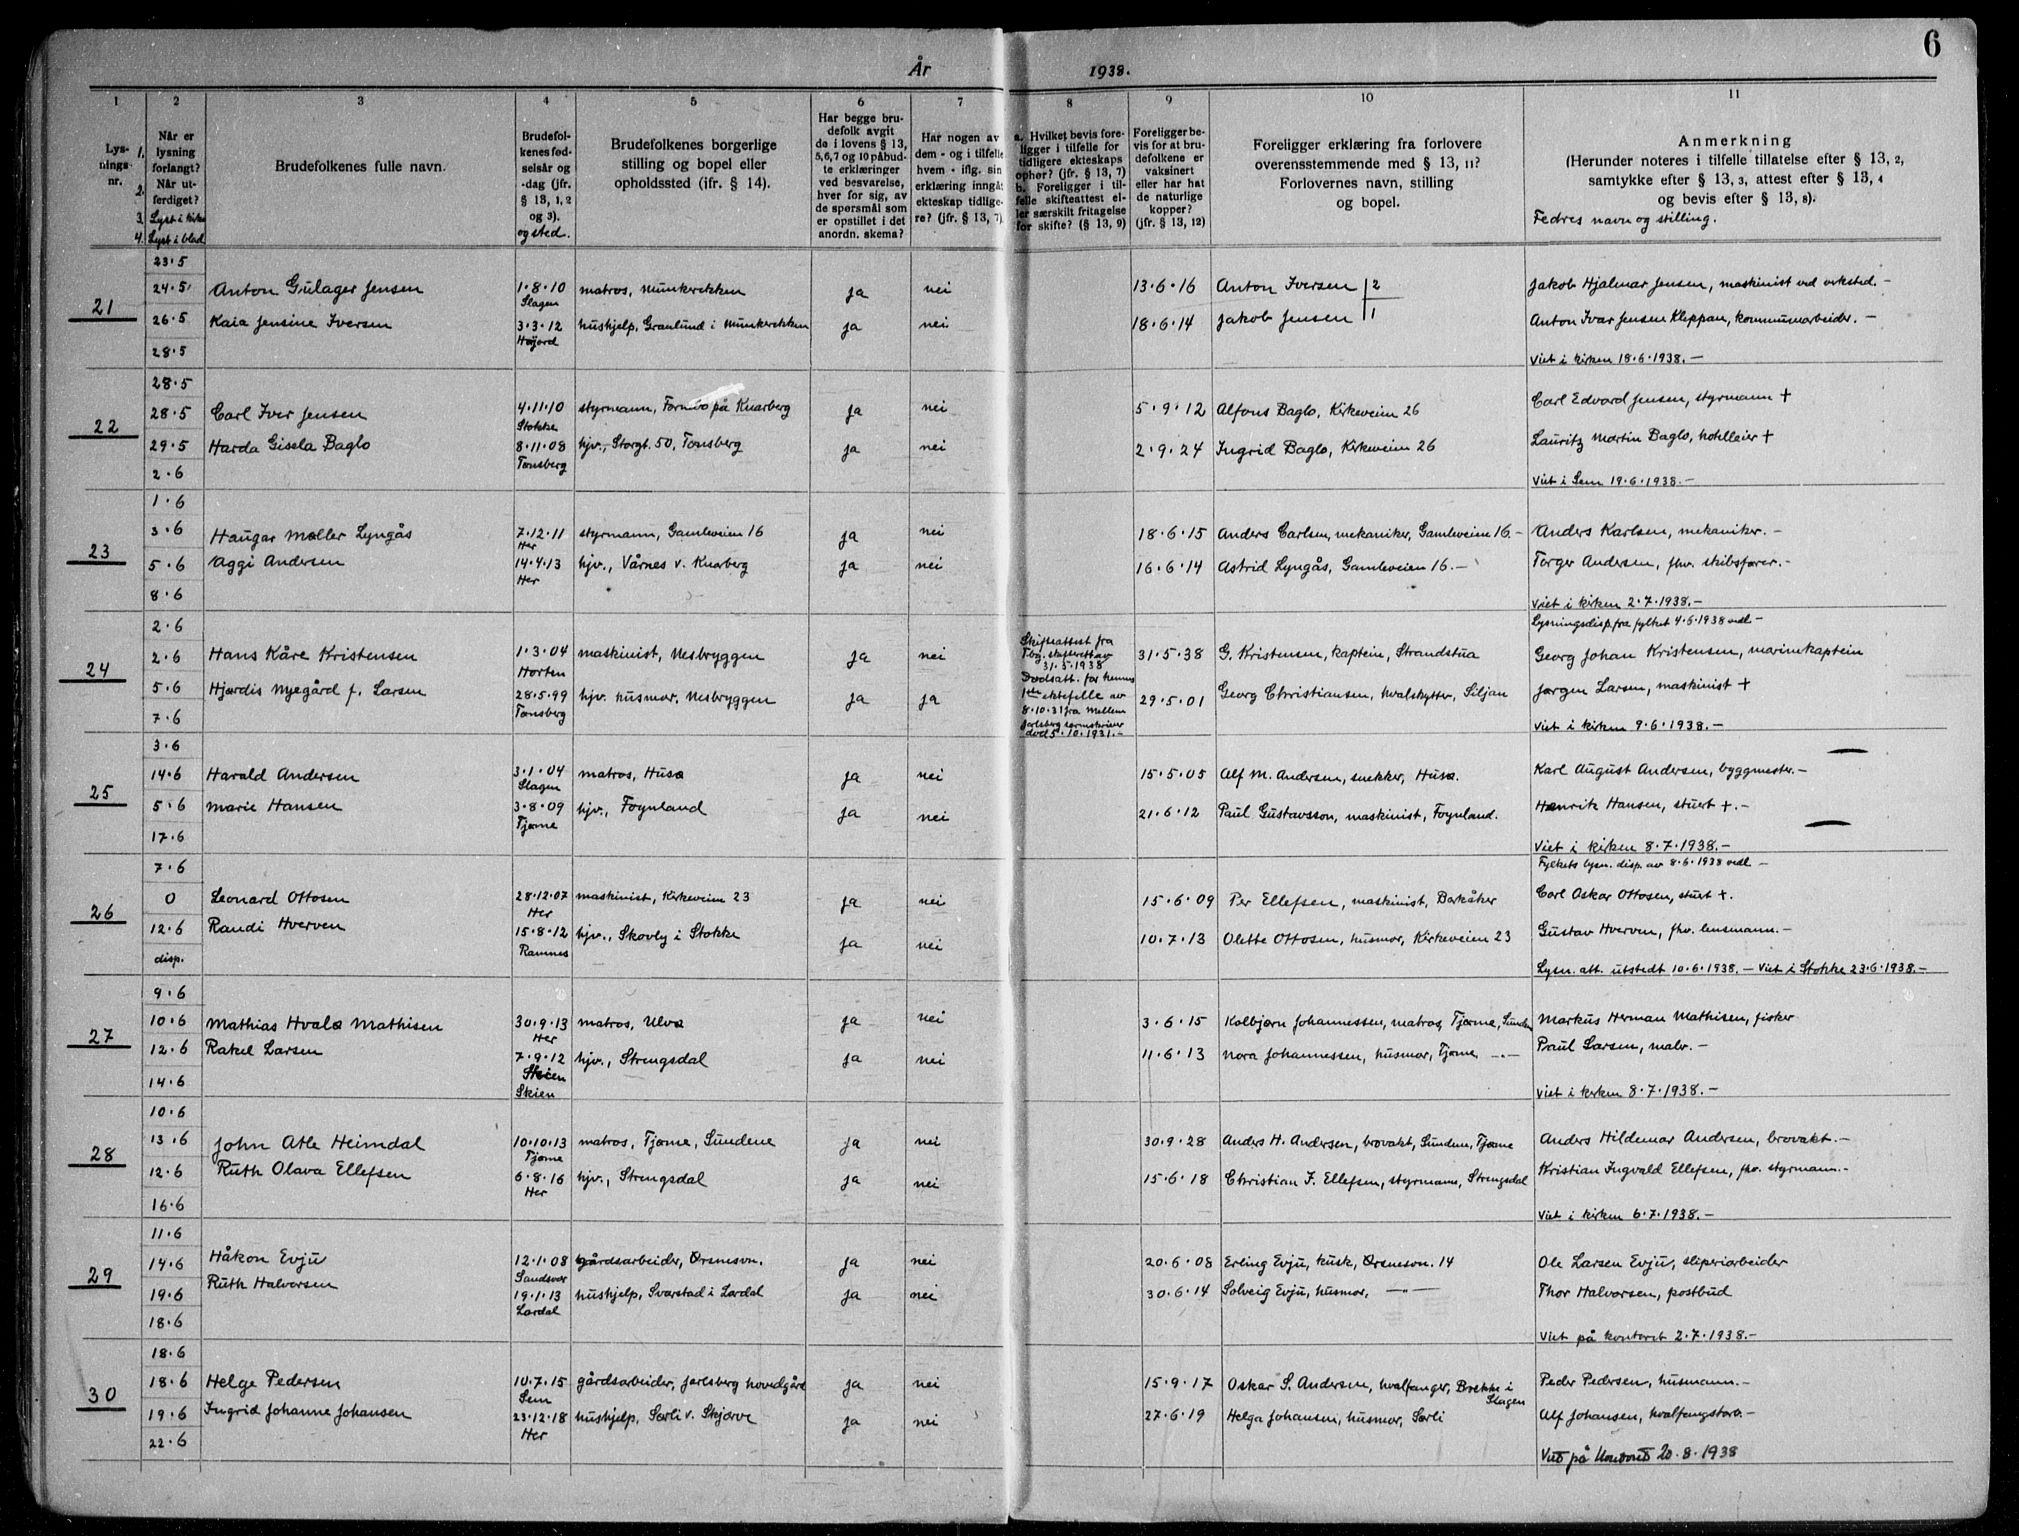 6
År 1938.
1 2 3 4 5 6 7 8 9 10 11
Lysnings-
nr.
1.
2.
3.
4.
Når er
lysning
forlangt?
Når ut-
ferdiget?
Lyst i kirke
Lyst i blad
Brudefolkenes fulle navn.
Brudefol-
kenes fød-
selsår og
-dag (jfr.
§ 13, 1, 2
og 3).
og sted.
Brudefolkenes borgerlige
stilling og bopel eller
opholdssted (ifr. § 14).
Har begge bru-
defolk avgit
de i lovens § 13,
5,6,7 og 10 påbud-
te erklæringer
ved besvarelse,
hver for sig, av
de spørsmål som
er opstillet i det
anordn. skema?
Har nogen av
dem - og i tilfelle
hvem - iflg. sin
erklæring inngåt
ekteskap tidlige-
re? (jfr. § 13, 7).
a. Hvilket bevis fore-
ligger i tilfelle for
tidligere ekteskaps
ophør? (jfr. § 13, 7)
b. Foreligger i til-
felle skifteattest el-
ler særskilt fritagelse
for skifte? (§ 13, 9)
Foreligger be-
vis for at bru-
defolkene er
vaksinert
eller har hat
de naturlige
kopper?
(jfr. § 13, 12)
Foreligger erklæring fra forlovere
overensstemmende med § 13, 11?
Forlovernes navn, stilling
og bopel.
Anmerkning
(Herunder noteres i tilfelle tillatelse efter § 13, 2,
samtykke efter § 13, 3, attest efter § 13, 4
og bevis efter § 13, 8).
Fedres navn og stilling.
21
23·5
24·5 Anton Gulager Jensen 1·8·10 matros, Munkerekken ja nei 13·6·16 Anton Iversen 2 Jakob Hjalmar Jensen, maskinist ved verksted.-
Slagen
26·5 Kaia Jensine Iversen 3·3·12 hushjelp, Granlund i Munkerekken ja nei 18·6·14 Jakob Jensen 1 Anton Ivar Jensen Kleppan, kommunearbeider.-
Høyjord
28·5 Viet i kirken 18·6·1938.-
22
28·5
28·5 Carl Iver Jensen 4·11·10 styrmann, Formbo på Knarberg ja nei 5·9·12 Alfons Baglo, Kirkeveien 26 Carl Edvard Jensen, styrmann +
Stokke
29·5 Harda Gisela Baglo 8·11·08 hjv., Storgt. 50, Tønsberg ja nei 2·9·24 Ingrid Baglo, Kirkeveien 26 Lauritz Martin Baglo, hotelleier +
Tønsberg
2·6 Viet i Sem 19·6·1938.-
23
1·6
3·6 Haugar Møller Lyngås 7·12·11 styrmann, Gamleveien 16 ja nei 18·6·15 Anders Carlsen, mekaniker, Gamleveien 16.- Anders Karlsen, mekaniker.-
Her
5·6 Aggi Andersen 14·4·13 hjv., Vårnes v. Knarberg ja nei 16·6·14 Astrid Lyngås, Gamleveien 16.- Torger Andersen, fhv. skibsfører.-
Her
8·6 Viet i kirken 2·7·1938.-
24
2·6 Lysningsdisp. fra fylket 4·6·1938 vedl.-
2·6 Hans Kåre Kristensen 1·3·04 maskinist, Nesbryggen ja nei 31·5·38 G. Kristensen, kaptein, Strandstua Georg Johan Kristensen, marinekaptein
Horten
5·6 Hjørdis Nyegård f. Larsen 28·5·99 hjv. husmor, Nesbryggen ja ja 29·5·01 Georg Christiansen, hvalskytter, Siljan Jørgen Larsen, maskinist +
Tønsberg
7·6 Viet i kirken 9·6·1938.-
Skifteattest fra
Tbg. skifterett av
31·5·1938
Dødsatt. for hennes
1ste ektefelle av
8·10·31 fra Mellem
Jarlsberg sorenskriver
død 5·10·1931.-
25
3·6
14·6 Harald Andersen 3·1·04 matros, Husø ja nei 15·5·05 Alf M. Andersen, snekker, Husø. Karl August Andersen, byggmester.-
Slagen
5·6 Marie Hansen 3·8·09 hjv., Føynland ja nei 21·6·12 Paul Gustavsson, maskinist, Føynland. Henrik Hansen, stuert +.-
Tjøme
17·6 Viet i kirken 8·7·1938.-
26
7·6 Fylkets lysn. disp. av 8·6·1938 vedl.-
0 Leonard Ottosen 28·12·07 maskinist, Kirkeveien 23 ja nei 15·6·09 Per Ellefsen, maskinist, Barkåker Carl Oskar Ottosen, stuert +.
Her
12·6 Randi Hverven 15·8·12 hjv., Skovly i Stokke ja nei 10·7·13 Olette Ottosen, husmor, Kirkeveien 23 Gustav Hverven, fhv. lensmann.-
Ramnes
disp. Lysn. att. utstedt 10·6·1938.- Viet i Stokke 23·6·1938.-
27
9·6
10·6 Mathias Hvalø Mathisen 30·9·13 matros, Ulvø ja nei 3·6·15 Kolbjørn Johannessen, matros, Tjøme, Sunden Markus Herman Mathisen, fisker
Her
12·6 Rakel Larsen 7·9·12 hjv., Strengsdal ja nei 11·6·13 Nora Johannessen, husmor, Tjøme -"- Paul Larsen, maler.-
Skien
14·6 Skien Viet i kirken 8·7·1938.-
28
10·6
13·6 John Atle Heimdal 10·10·13 matros, Tjøme, Sundene ja nei 30·9·28 Anders H. Andersen, brovakt, Sunden, Tjøme Anders Hildemar Andersen, brovakt.-
Tjøme
12·6 Ruth Olava Ellefsen 6·8·16 hjv., Strengsdal ja nei 15·6·18 Christian F. Ellefsen, styrmann, Strengsdal Kristian Ingvald Ellefsen, fhv. styrmann.-
Her
16·6 Viet i kirken 6·7·1938.-
29
11·6
14·6 Håkon Evju 12·1·08 gårdsarbeider, Ørsnesvn. ja nei 20·6·08 Erling Evju, kusk, Ørsnesvn. 14 Ole Larsen Evju, sliperiarbeider
Sandsvær
19·6 Ruth Halvorsen 19·1·13 hushjelp, Svarstad i Lardal ja nei 30·6·14 Solveig Evju, husmor, -"- Thor Halvorsen, postbud
Lardal
18·6 Viet på kontoret 2·7·1938.-
30
18·6
18·6 Helge Pedersen 10·7·15 gårdsarbeider, Jarlsberg hovedgård ja nei 15·9·17 Oskar S. Andersen, hvalfanger, Brekke i Slagen Peder Pedersen, husmann.-
Sem
19·6 Ingrid Johanne Johansen 23·12·18 hushjelp, Sørli v. Skjerve ja nei 27·6·19 Helga Johansen, husmor, Sørli Alf Johansen, hvalfangstarb.-
Her
22·6 Viet på kontoret 20·8·1938